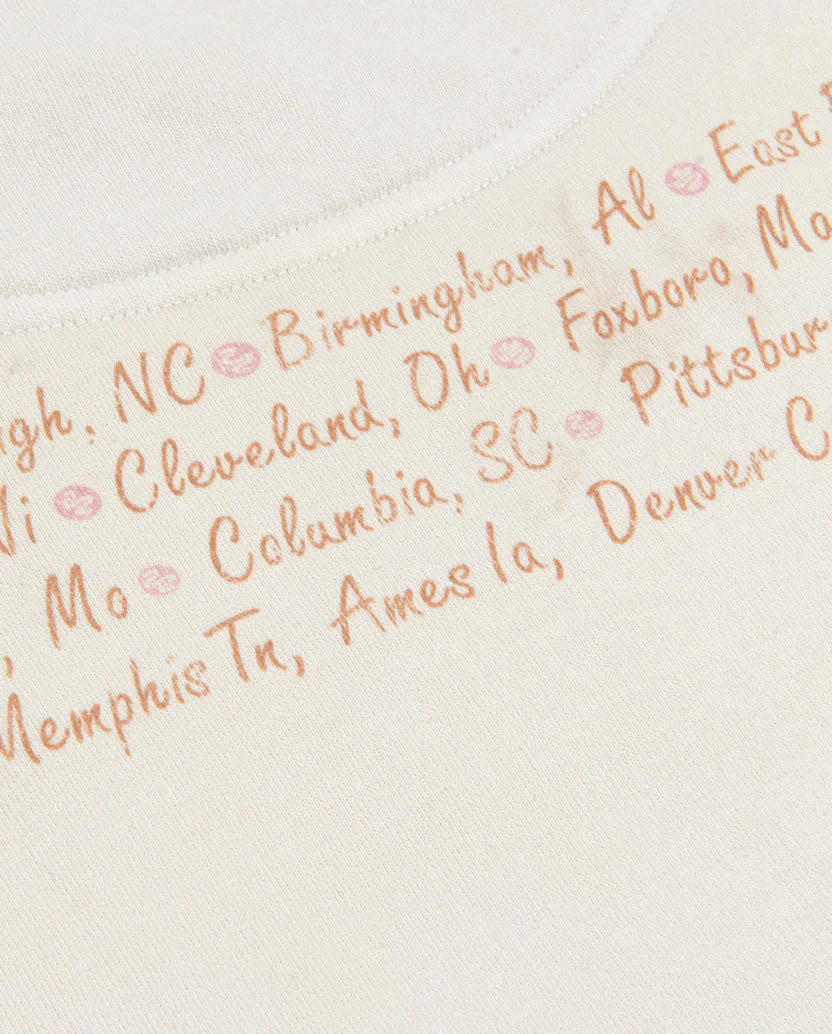 NC Birmingham, Al East
Cleveland, Oh Foxboro,
Mo Columbia, SC
Memphis Tn, Ames Ia, Denver